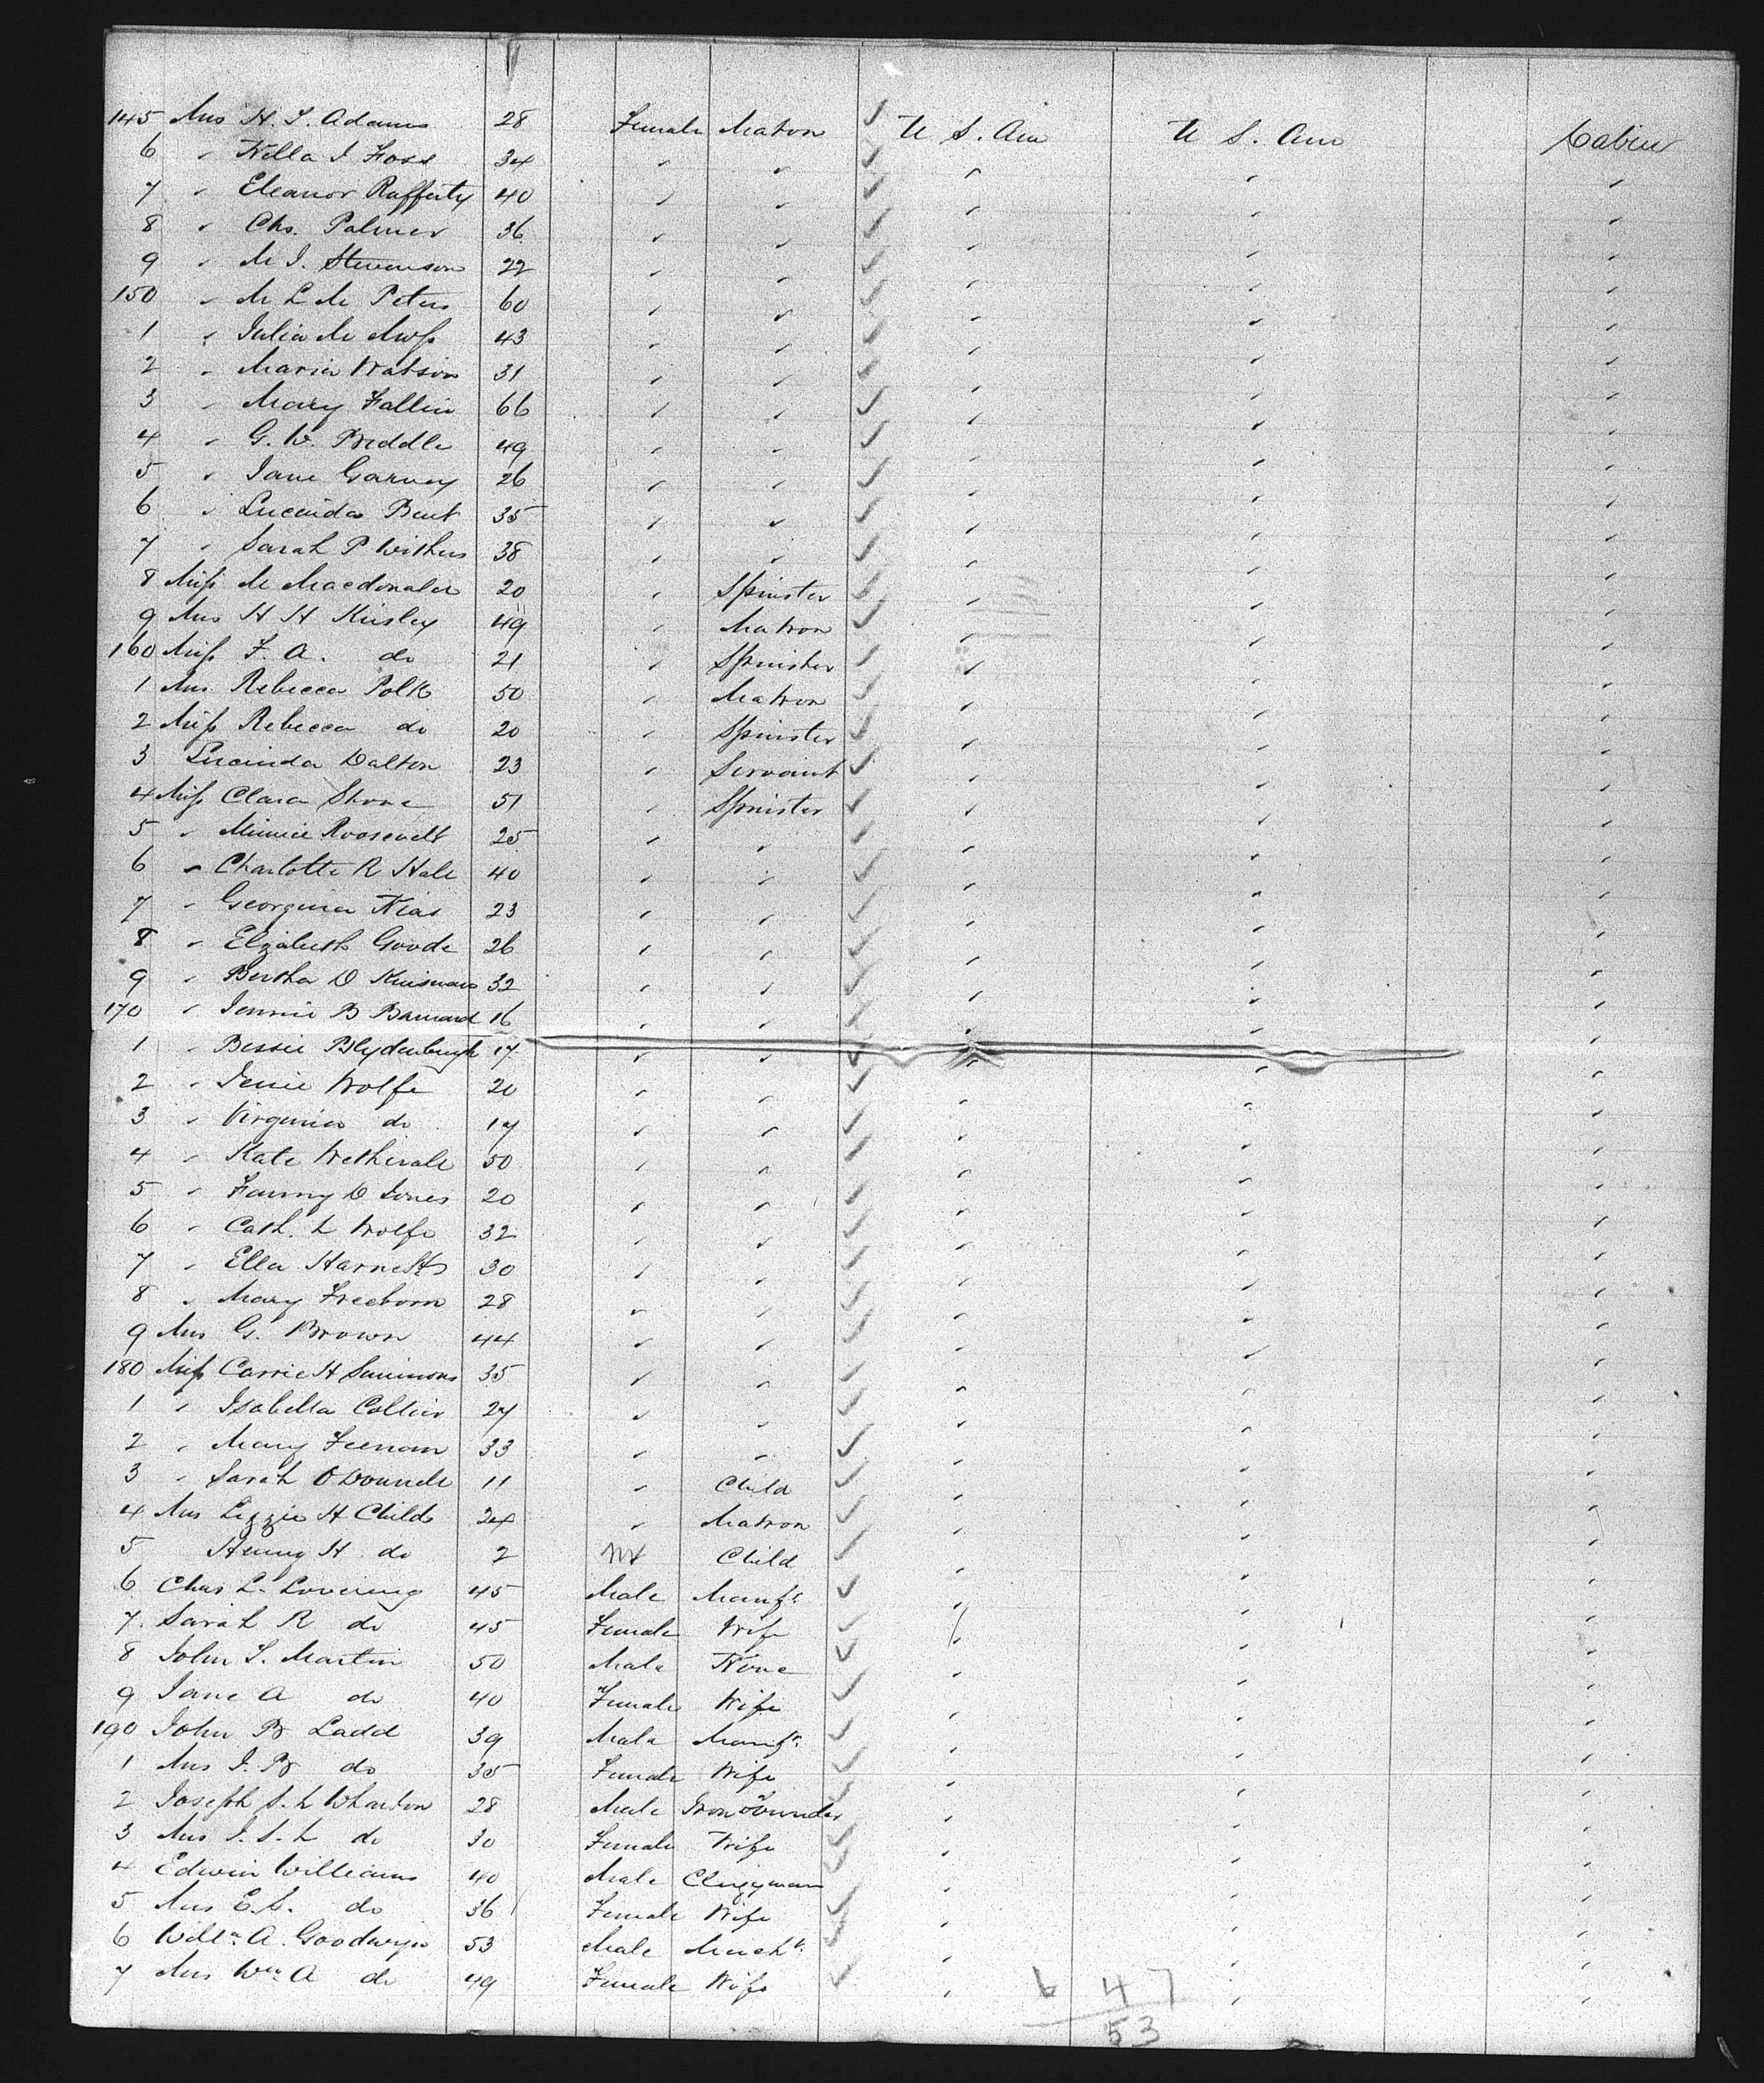 145 Mrs H. S. Adams 28 Female Matron ✓ U S. Am U S. Am Cabin
6 " Nella I Foss 34 " " ✓ " " "
7 " Eleanor Rafferty 40 " " ✓ " " "
8 " Chs. Palmer 36 " " ✓ " " "
9 " M I. Stevenson 22 " " ✓ " " "
150 " M L M Peters 60 " " ✓ " " "
1 " Julia M 43 " " ✓ " " "
2 " Maria Watson 31 " " ✓ " " "
3 " Mary Fallin 66 " " ✓ " " "
4 " G. W. 49 " " ✓ " " "
5 " Jane Garvey 26 " " ✓ " " "
6 " Lucinda Bent 35 " " ✓ " " "
7 " Sarah P Withers 38 " " ✓ " " "
8 Miss M Macdonald 20 " Spinster ✓ " " "
9 Mrs H H Kinsley 49 " Matron ✓ " " "
160 Miss F. A. do 21 " Spinster ✓ " " "
1 Mrs Rebecca Polk 50 " Matron ✓ " " "
2 Miss Rebecca do 20 " Spinster ✓ " " "
3 Lucinda Dalton 23 " Servant ✓ " " "
4 Miss Clara Stone 51 " Spinster ✓ " " "
5 " Minnie Roosevelt 25 " " ✓ " " "
6 " Charlotte R Hale 40 " " ✓ " " "
7 " Georgina 23 " " ✓ " " "
8 " Elizabeth Goode 26 " " ✓ " " "
9 " Bertha D 32 " " ✓ " " "
170 " Jennie B Barnard 16 " " ✓ " " "
1 " Bessie Blydenburgh 17 " " ✓ " " "
2 " Jennie Wolfe 20 " " ✓ " " "
3 " Virginia do 17 " " ✓ " " "
4 " Kate Wetherale 50 " " ✓ " " "
5 " Fanny D Jones 20 " " ✓ " " "
6 " Cath. L Wolfe 32 " " ✓ " " "
7 " Ella Harnett 30 " " ✓ " " "
8 " Mary Freeborn 28 " " ✓ " " "
9 Mrs G. Brown 44 " " ✓ " " "
180 Miss Carrie H Simmons 35 " " ✓ " " "
1 " Isabella Collier 27 " " ✓ " " "
2 " Mary Feenan 33 " " ✓ " " "
3 " Sarah O Donnell 11 " Child ✓ " " "
4 Mrs Lizzie H Childs 24 " Matron ✓ " " "
5 Henry H do 2 M Child ✓ " " "
6 Chas L. Lovering 45 Male Manfr ✓ " " "
7 Sarah R do 45 Female Wife ✓ " " "
8 John S. Martin 50 Male None ✓ " " "
9 Jane A do 40 Female Wife ✓ " " "
190 John B Ladd 39 Male Manfr. ✓ " " "
1 Mrs J. B do 35 Female Wife ✓ " " "
2 Joseph S. L Wharton 28 Male Iron Founder ✓ " " "
3 Mrs J. S. L do 30 Female Wife ✓ " " "
4 Edwin Williams 40 Male Clergyman ✓ " " "
5 Mrs E. S. do 36 Female Wife ✓ " " "
6 Willm A. Goodwyn 53 Male Mercht. ✓ " " "
7 Mrs Wm A do 49 Female Wife ✓ " " "
6 47
53